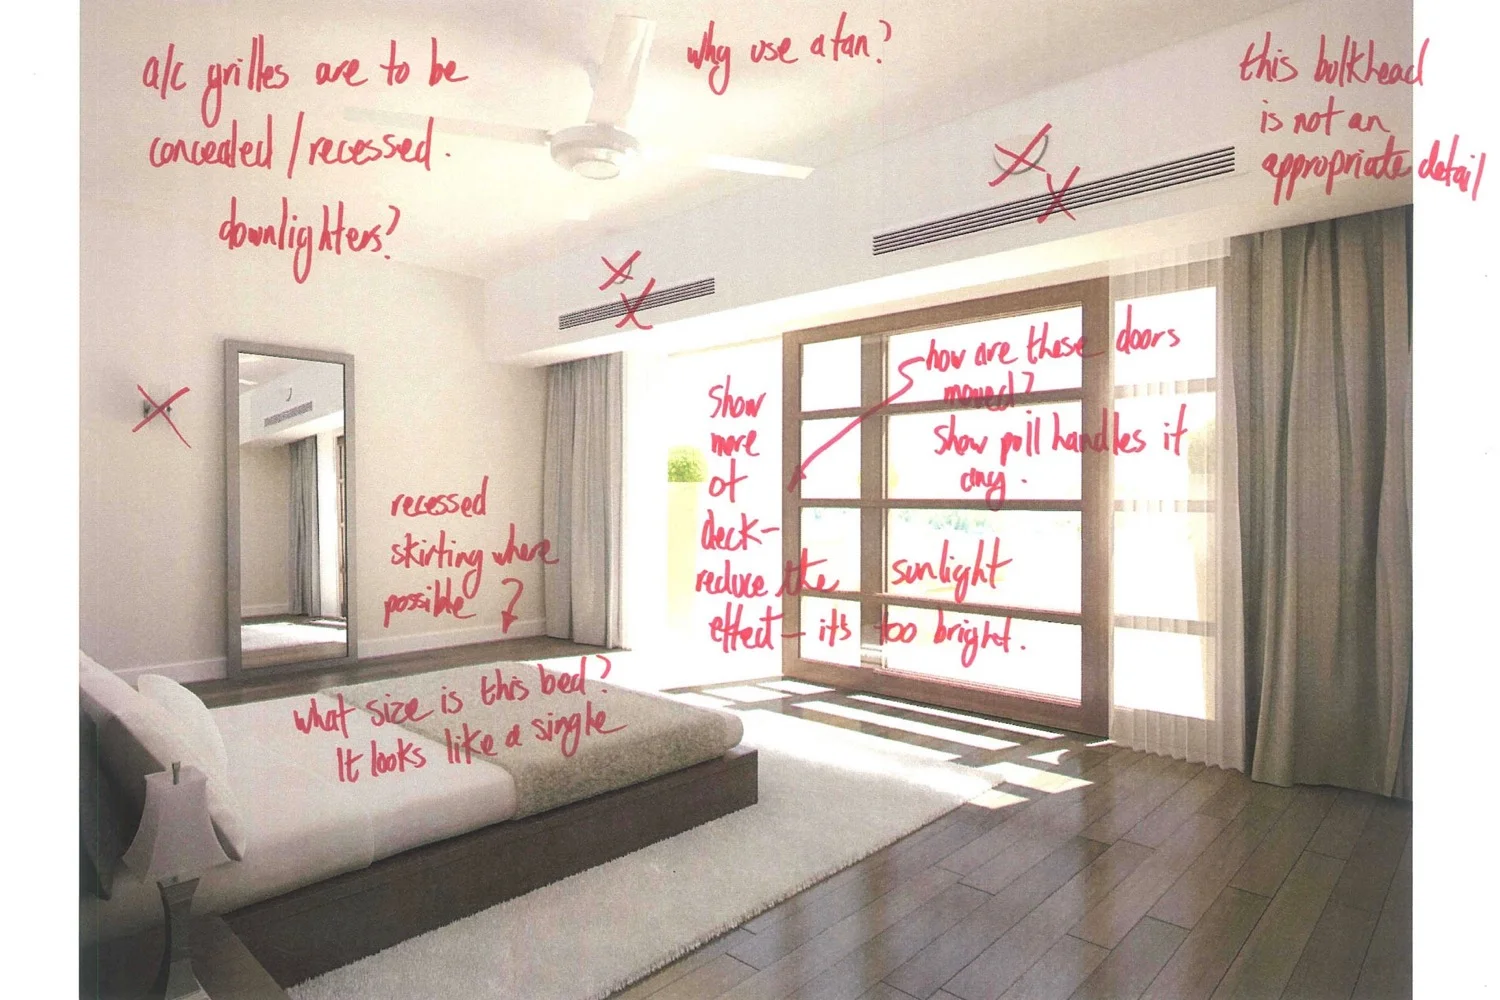 a/c grilles are to be
concealed / recessed.
downlighters?
why use a fan?
this bulkhead
is not an
appropriate detail
how are these doors
moved?
show pull handles if
any.
show
more
of
deck-
reduce the sunlight
effect - it's too bright.
recessed
skirting where
possible
what size is this bed?
It looks like a single